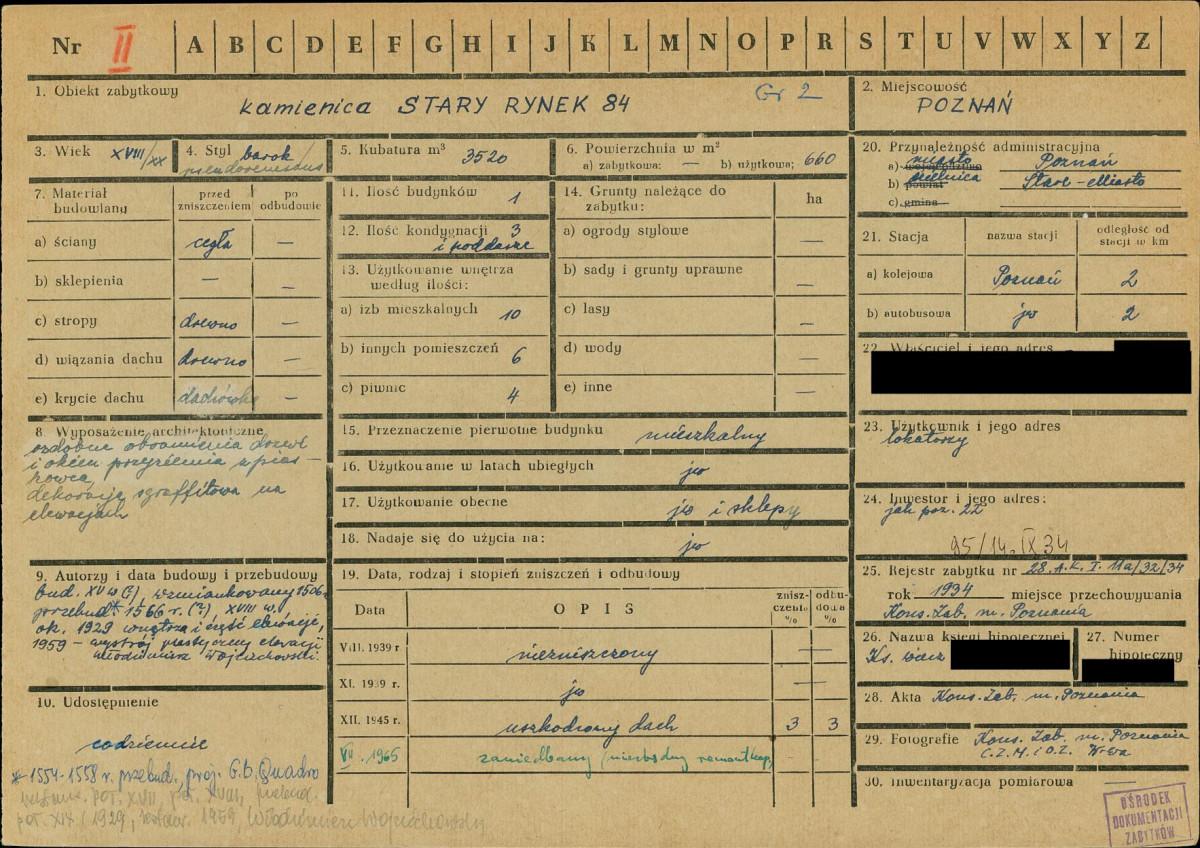 Nr II A B C D E F G H I J K L M N O P R S T U V W X Y Z
1. Obiekt zabytkowy
kamienica STARY RYNEK 84 Gr 2
2. Miejscowość
POZNAŃ
3. Wiek XVIII/XX
4. Styl barok/
pseudorenesans
5. Kubatura m³ 3520
6. Powierzchnia w m²
a) zabytkowa: — b) użytkowa; 660
7. Materiał budowlany
przed zniszczeniem
po odbudowie
a) ściany cegła —
b) sklepienia — —
c) stropy drewno —
d) wiązania dachu drewno —
e) krycie dachu dachówka —
8. Wyposażenie architektoniczne
ozdobne obramienia drzwi
i okien przyziemia z pias-
kowca,
dekoracja sgraffitowa na
elewacjach
9. Autorzy i data budowy i przebudowy
bud. XV w (?), wzmiankowany 1506
przebud.* 1566 r. (?), XVIII w.
ok. 1929 wnętrza i część elewacji,
1959 – wystrój plastyczny elewacji
Włodzimierz Wojciechowski.
10. Udostępnienie
codziennie
* 1554-1558 r. przebud. proj. G.b. Quadro
poł. XVII, poł. XVIII,
poł. XIX, 1929, restaur. 1959, Włodzimierz Wojciechowski
11. Ilość budynków 1
12. Ilość kondygnacji 3
i poddasze
13. Użytkowanie wnętrza
według ilości:
a) izb mieszkalnych 10
b) innych pomieszczeń 6
c) piwnic 4
14. Grunty należące do
zabytku: ha
a) ogrody stylowe —
b) sady i grunty uprawne —
c) lasy —
d) wody —
e) inne —
15. Przeznaczenie pierwotne budynku mieszkalny
16. Użytkowanie w latach ubiegłych jw
17. Użytkowanie obecne jw i sklepy
18. Nadaje się do użycia na: jw
19. Data, rodzaj i stopień zniszczeń i odbudowy
Data OPIS znisz-
czenie
%
odbu-
dowa
%
VIII. 1939 r. niezniszczony —
XI. 1939 r. jw —
XII. 1945 r. uszkodzony dach 3 3
VII. 1965 zaniedbany (niezbędny remont kap.)
20. Przynależność administracyjna
a) województwo miasto Poznań
b) powiat dzielnica Stare-Miasto
c) gmina
21. Stacja nazwa stacji odległość od
stacji w km
a) kolejowa Poznań 2
b) autobusowa jw 2
22. Właściciel i jego adres
23. Użytkownik i jego adres
lokatorzy
24. Inwestor i jego adres:
jak poz. 22
95/14.IX 34
25. Rejestr zabytku nr 28.A.K.I. 11a/32/34
rok 1934 miejsce przechowywania
Kons. Zab. m. Poznania
26. Nazwa księgi hipotecznej
Ks. wiecz
27. Numer
hipoteczny
28. Akta Kons. Zab. m. Poznania
29. Fotografie Kons. Zab. m. Poznania
C.Z.M. i O.Z. W-wa
30. Inwentaryzacja pomiarowa —
OŚRODEK
DOKUMENTACJI
ZABYTKÓW